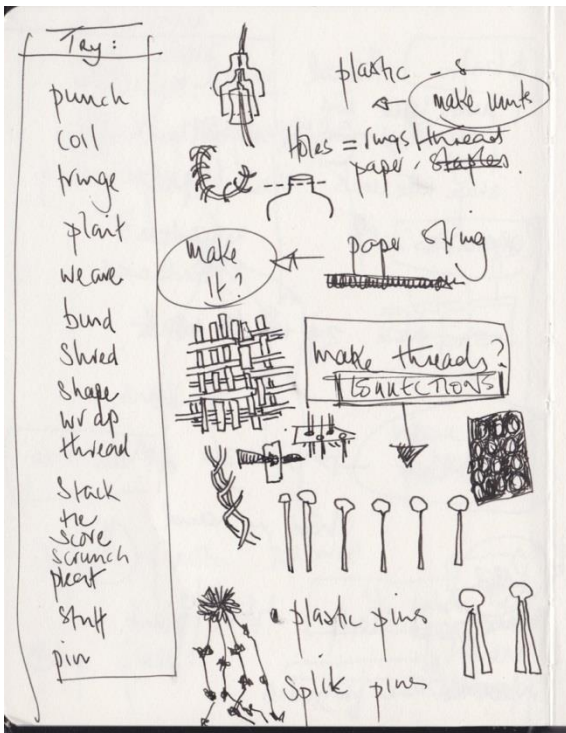 Try:
punch
coil
fringe
plait
weave
bind
Shred
shape
wrap
thread
Stack
tie
score
scrunch
pleat
stuff
pin
plastic - s
make units
Holes = rings / thread
paper. staples.
make
It?
paper string
make threads?
CONNECTIONS
plastic pins
Split pins